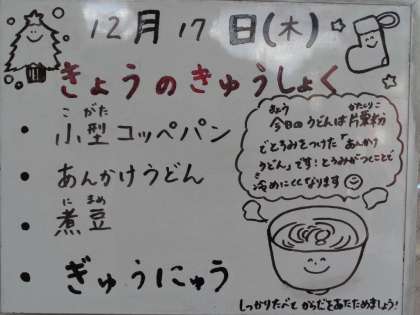 12月17日(木)
きょうのきゅうしょく
こがた
・小型コッペパン
・あんかけうどん
にまめ
・煮豆
・ぎゅうにゅう
きょう かたくりこ
今日のうどんは片栗粉
でとろみをつけた「あんかけ
うどん」です!とろみがつくことで
さ
冷めにくくなります
しっかりたべて からだをあたためましょう!